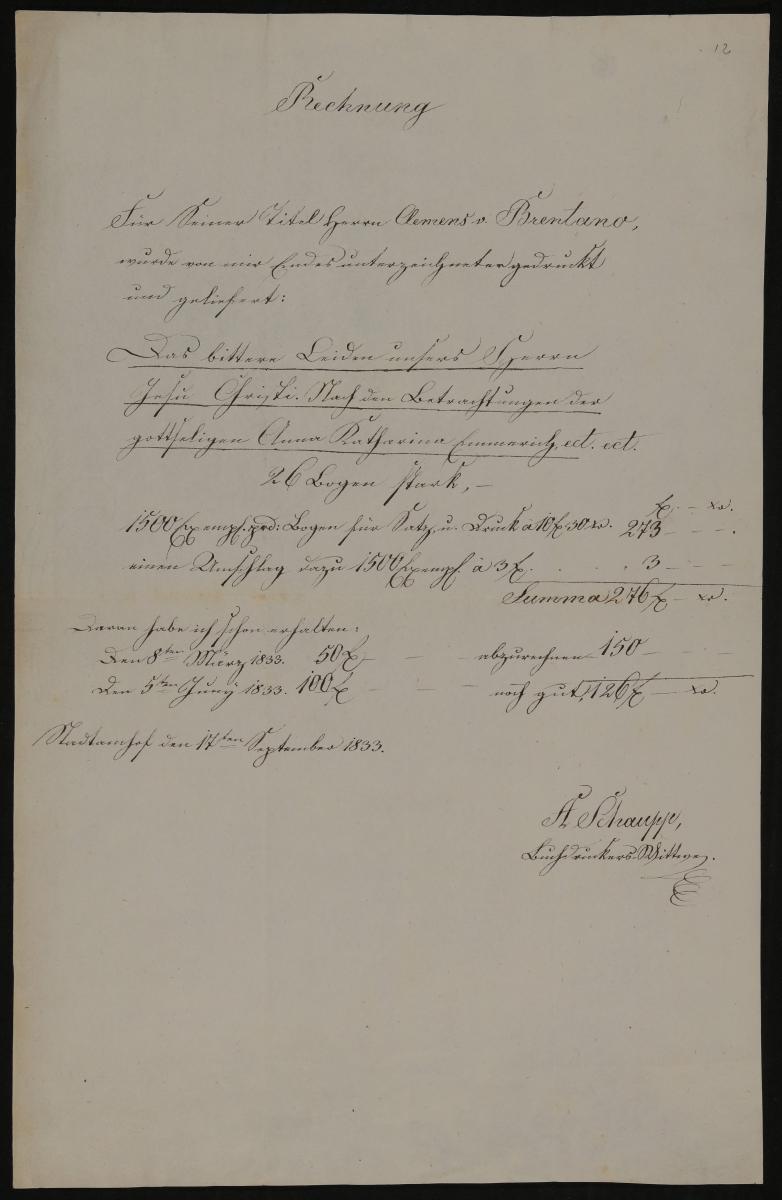 12
Rechnung
Für Seiner Titel Herrn Clemens v. Brentano,
wurde von mir Endesunterzeichneter gedruckt
und geliefert:
Das bittere Leiden unsers Herrn
Jesu Christi. Nach den Betrachtungen der
gottseligen Anna Katharina Emmerich, ect. ect.
26 Bogen stark, —
f. — xr.
1500 Exempl. prd: Bogen für Satz u. Druck à 10 f 30 xr. 273 — — .
einen Umschlag dazu 1500 Exempl. à 3 f. . . . 3 — —
Summa 276 f — xr.
Daran habe ich schon erhalten:
Den 8ten März 1833. 50 f — — — abzurechnen 150 — — —
Den 5ten Juny 1833. 100 f — — — noch gut, 126 f — xr.
Stadtamhof den 17ten September 1833.
A Schaupp,
Buchdruckers-Wittwe.